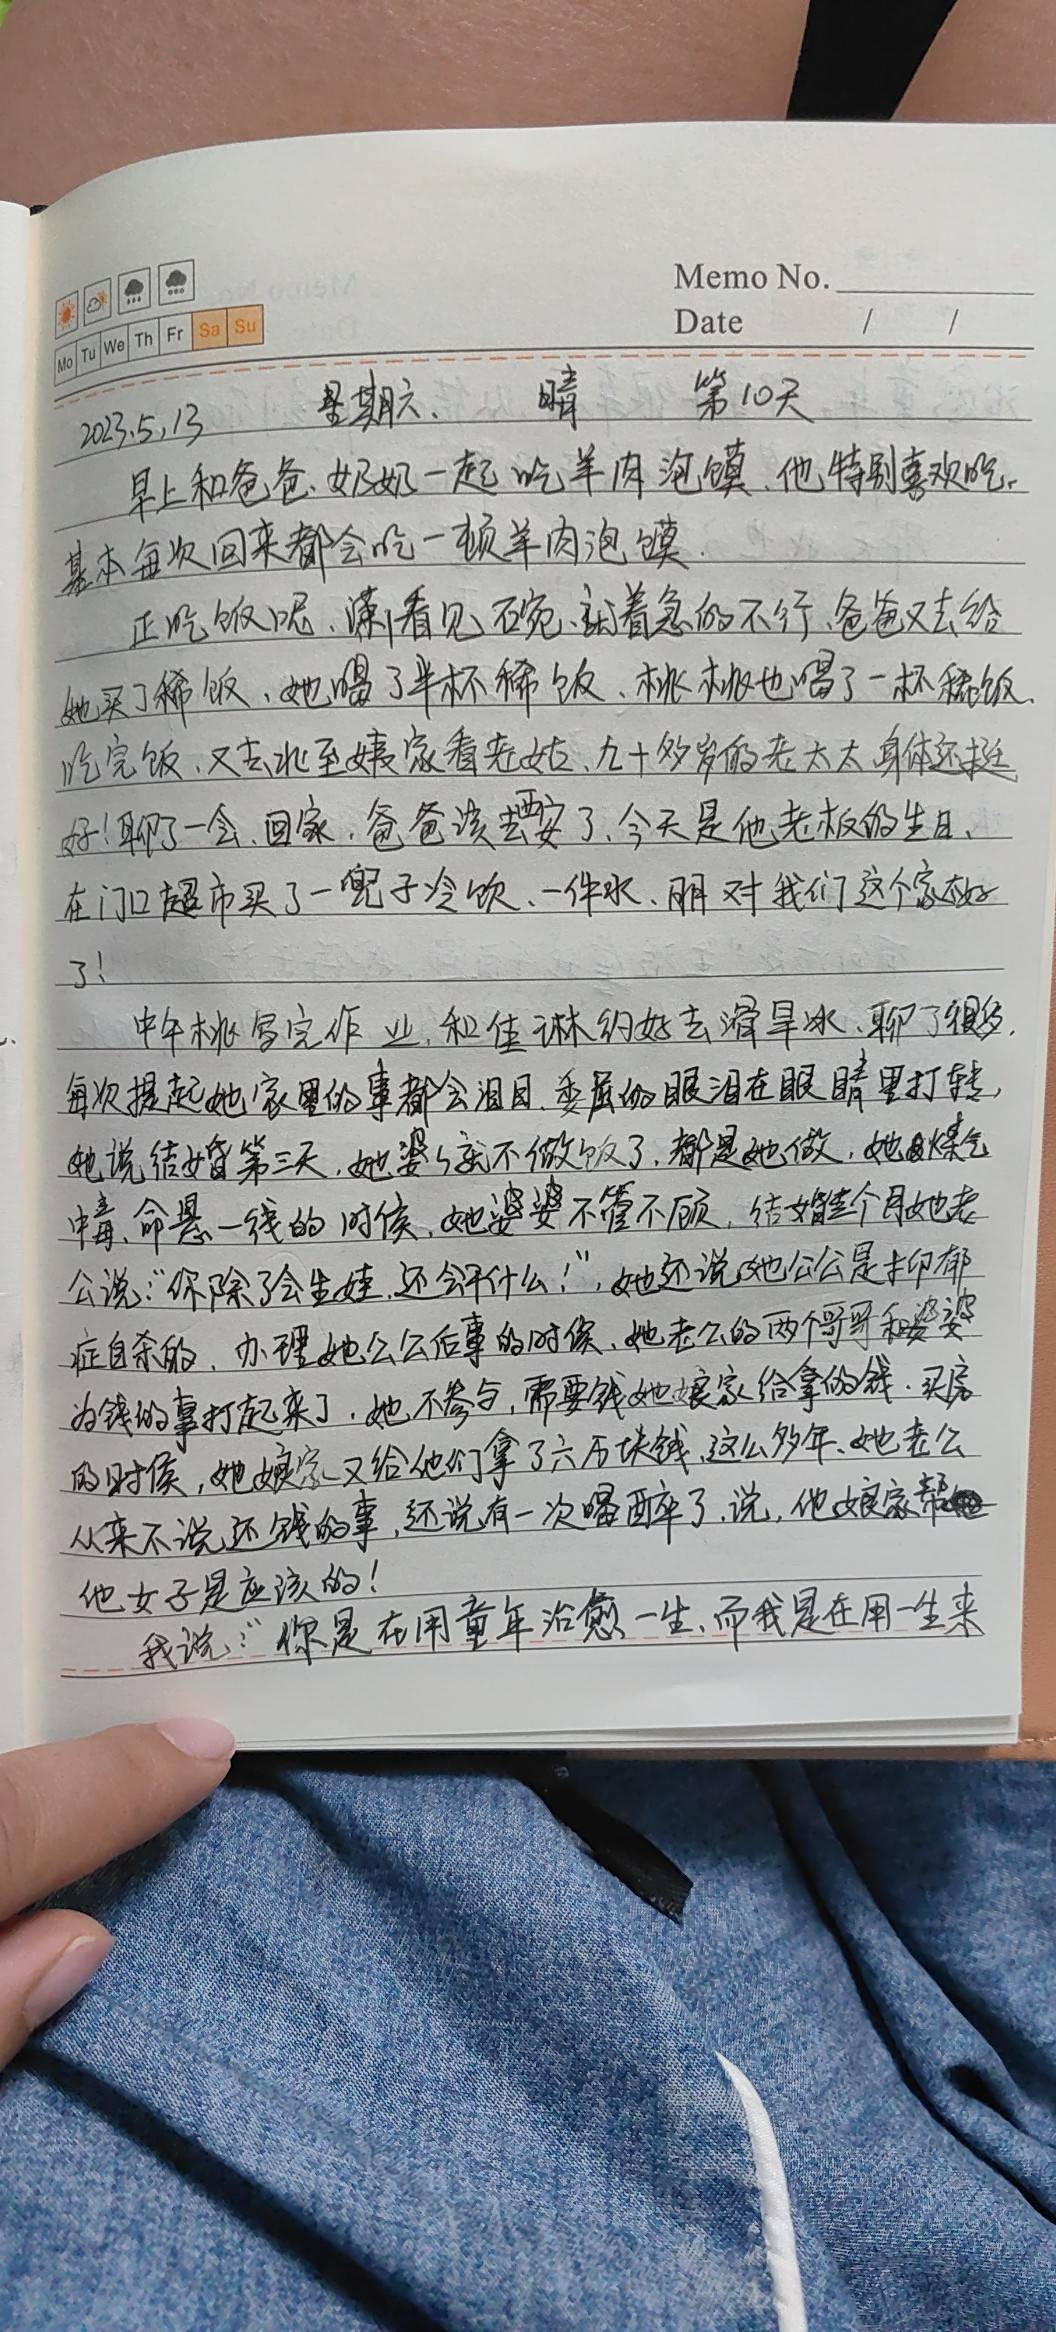 Memo No.
Date / /
Mo Tu We Th Fr Sa Su
2023.5.13 星期六. 晴 第10天
早上和爸爸、奶奶一起吃羊肉泡馍、他特别喜欢吃.
基本每次回来都会吃一顿羊肉泡馍.
正吃饭呢、看见石宛、就着急的不行、爸爸又去给
她买了稀饭、她喝了半杯稀饭、桃桃也喝了一杯稀饭.
吃完饭、又去北至姨家看老姑、九十多岁的老太太身体还挺
好!聊了一会、回家、爸爸该去西安了、今天是他老板的生日、
在门口超市买了一兜子冷饮、一件水、朋对我们这个家太好
了!
中午桃写完作业、和佳琳约好去滑旱冰、聊了很多.
每次提起她家里的事都会泪目、委屈的眼泪在眼睛里打转,
她说结婚第三天,她婆婆就不做饭了、都是她做,她煤气
中毒、命悬一线的时候,她婆婆不管不顾,结婚个月她老
公说:“你除了会生娃,还会干什么!”,她还说她公公是抑郁
症自杀的、办理她公公后事的时候、她老公的两个哥哥和婆婆
为钱的事打起来了,她不参与,需要钱她娘家给拿的钱.买房
的时候,她娘家又给他们拿了六万块钱、这么多年、她老公
从来不说还钱的事,还说有一次喝醉了,说,他娘家帮
他女子是应该的!
我说:“你是在用童年治愈一生、而我是在用一生来